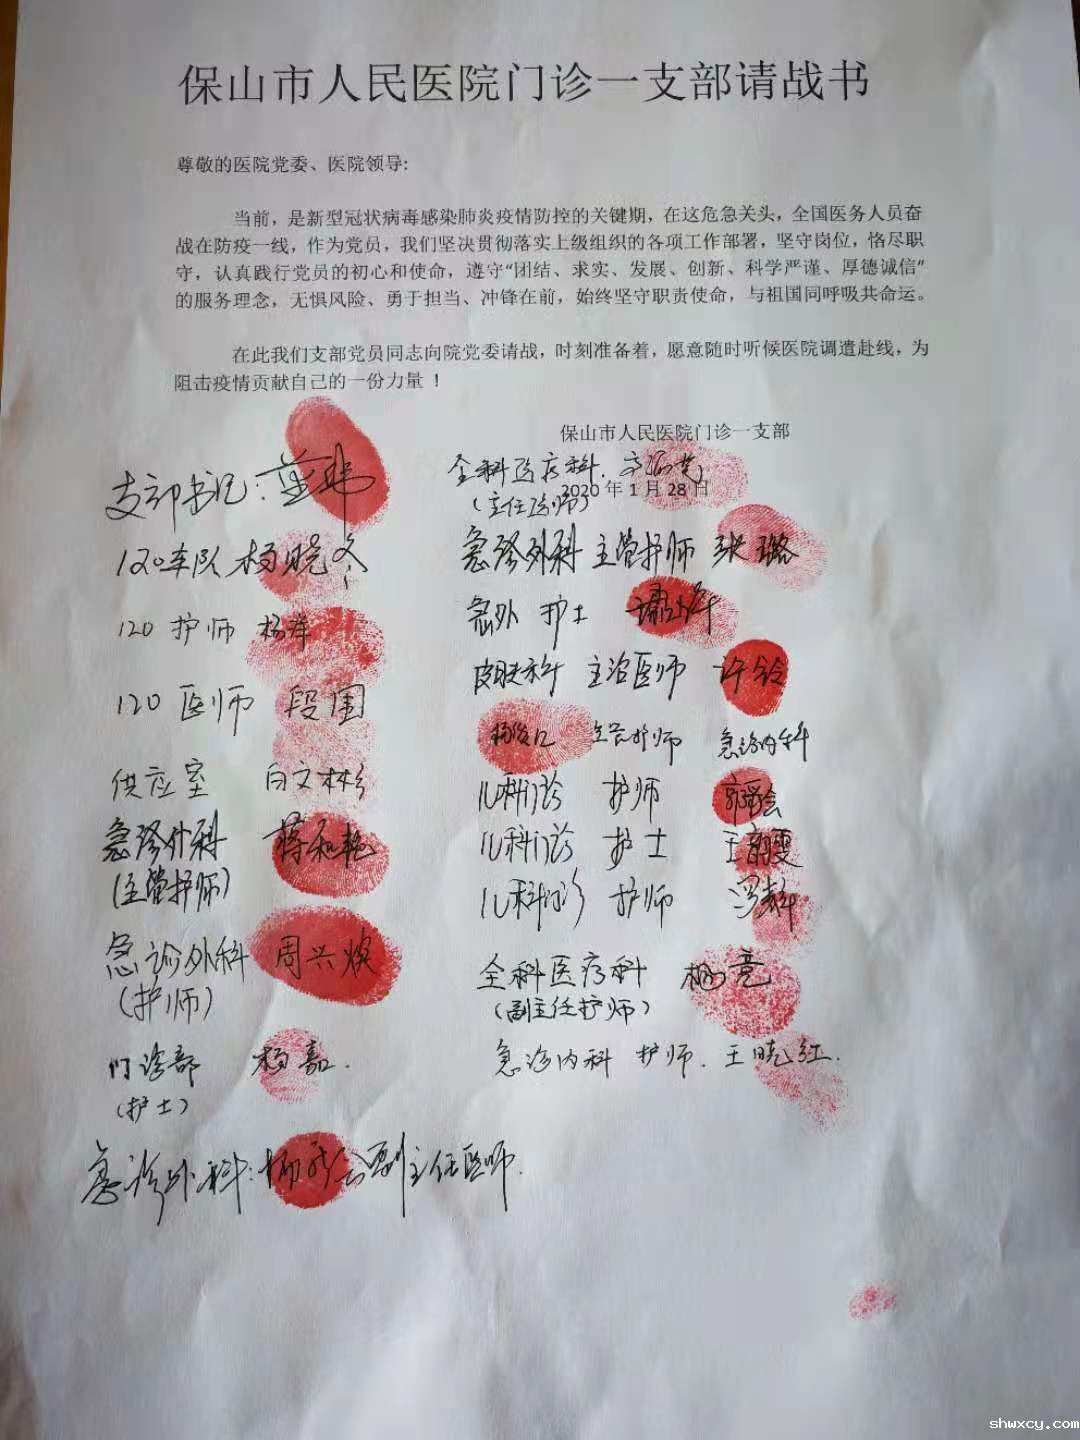 保山市人民医院门诊一支部请战书
尊敬的医院党委、医院领导:
当前，是新型冠状病毒感染肺炎疫情防控的关键期，在这危急关头，全国医务人员奋
战在防疫一线，作为党员，我们坚决贯彻落实上级组织的各项工作部署，坚守岗位，恪尽职
守，认真践行党员的初心和使命，遵守“团结、求实、发展、创新、科学严谨、厚德诚信”
的服务理念，无惧风险、勇于担当、冲锋在前，始终坚守职责使命，与祖国同呼吸共命运。
在此我们支部党员同志向院党委请战，时刻准备着，愿意随时听候医院调遣赴线，为
阻击疫情贡献自己的一份力量！
保山市人民医院门诊一支部
2020 年 1 月 28 日
支部书记：
120车队 杨晓冬
120 护师 杨萍
120 医师 段围
供应室 白文彬
急诊外科 蒋和艳
(主管护师)
急诊外科 周兴焕
(护师)
门诊部 杨嘉.
(护士)
急诊外科: 副主任医师.
全科医疗科.
(主任医师)
急诊外科 主管护师 张璐
急外 护士
皮肤科 主治医师 许铃
主管护师 急诊内科
儿科门诊 护师
儿科门诊 护士
儿科门诊 护师
全科医疗科 杨竞
(副主任护师)
急诊内科 护师. 王晓红.
shwxcy.com